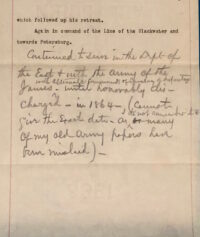 which followed up his retreat.
Again in command of the line of the Blackwater and
towards Petersburg.
Continued to serve in the Dept of
the East & with the Army of the
James – until honorably dis-
charged – in 1864 – (Cannot
give the exact date – as so many
of my old army papers have
been mislaid) –